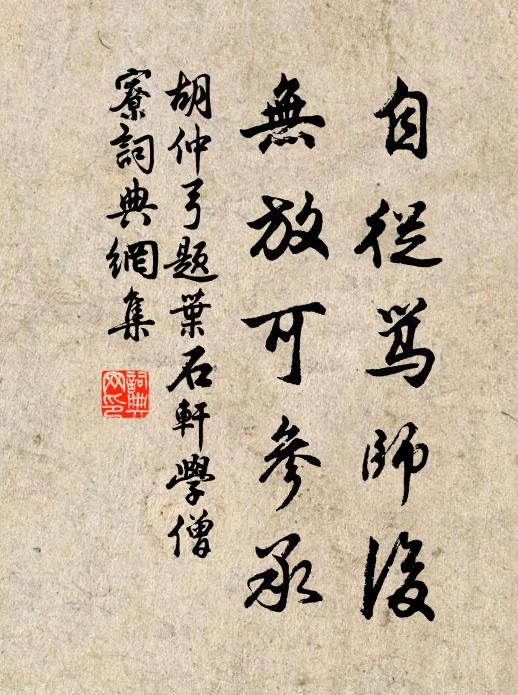 自從篤師後
無放可參承
胡仲弓題葉石軒學僧
寮詞典網集
詞典
网印